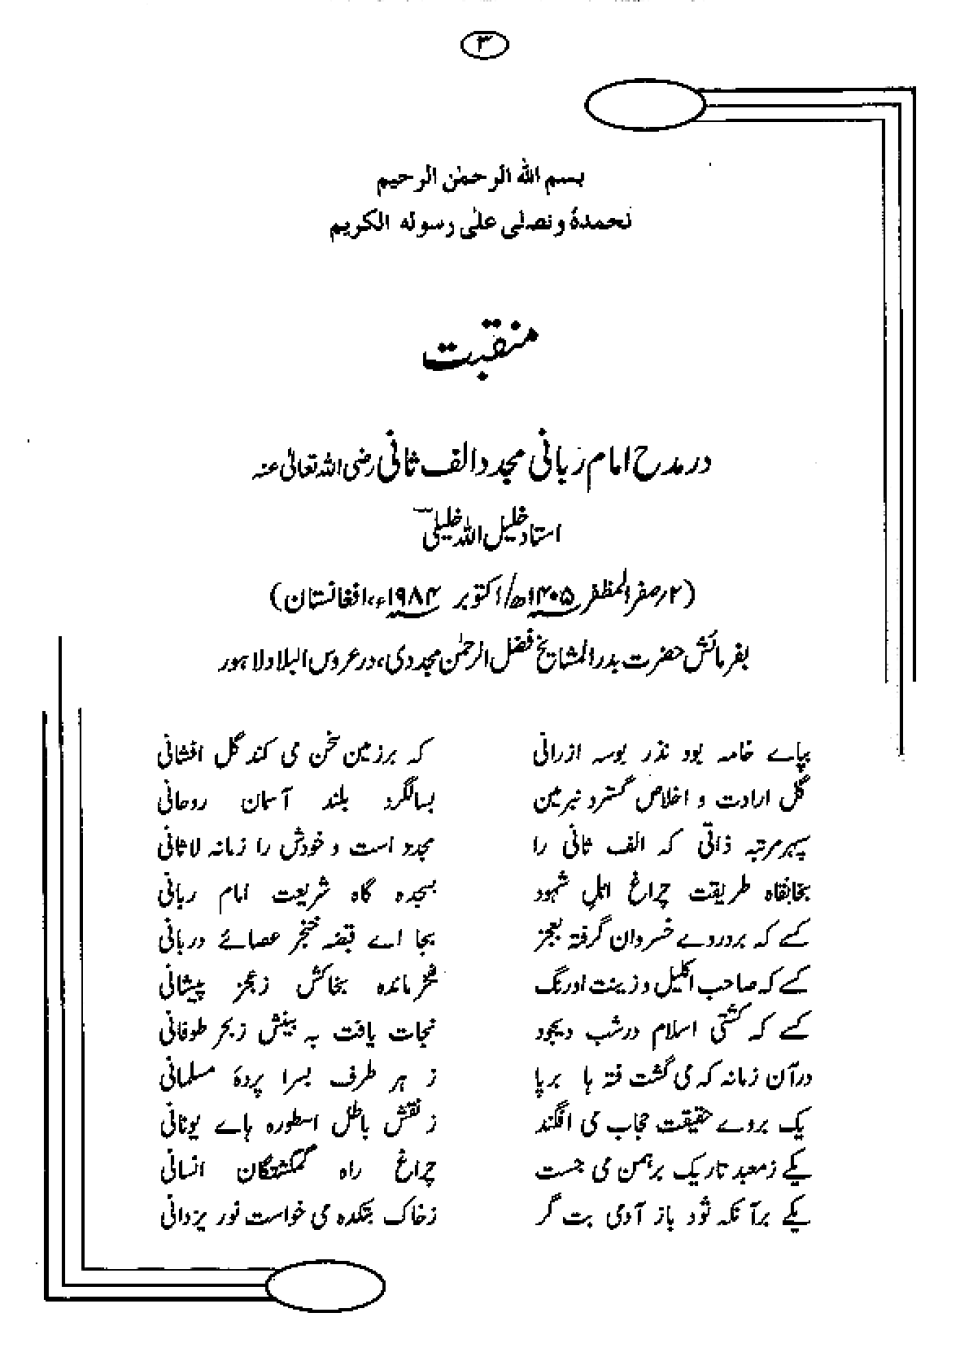 ۳
بسم الله الرحمٰن الرحیم
نحمدہٗ ونصلی علیٰ رسولہ الکریم
منقبت
در مدح امام ربانی مجدد الف ثانی رضی اللہ تعالیٰ عنہ
استاد خلیل اللہ خلیلیؔ
(۲؍صفر المظفر ۱۴۰۵ھ/اکتوبر ۱۹۸۴ء، افغانستان)
بفرمائش حضرت بدر المشایخ فضل الرحمٰن مجددی، در عروس البلاد لاہور
بپاے خامہ بود نذر بوسہ ارزانی کہ برزمین سخن می کند گل افشانی
گل ارادت و اخلاص گسترد نبرمین بسالگرد بلند آسمان روحانی
سپہر مرتبہ ذاتی کہ الف ثانی را مجدد است و خودش را زمانہ لاثانی
بخانقاہ طریقت چراغ اہلِ شہود بسجدہ گاہ شریعت امام ربانی
کسے کہ بردروے خسروان گرفتہ بعجز بجا اے قبضہ خنجر عصائے دربانی
کسے کہ صاحب اکلیل و زینت اورنگ فخر ماندہ بخاکش ز عجز پیشانی
کسے کہ کشتی اسلام در شب دیجود نجات یافت بہ بینش زبحر طوفانی
درآن زمانہ کہ می گشت فتہ ہا برپا ز ہر طرف بسرا پردۂ مسلمانی
یک بروے حقیقت حجاب می افگند ز نقش باطل اسطورہ ہاے یونانی
یکے ز معبد تاریک برہمن می جست چراغ راہ گمگشتگان انسانی
یکے برآنکہ شود باز آدمی بت گر زخاک بتکدہ می خواست نور یزدانی